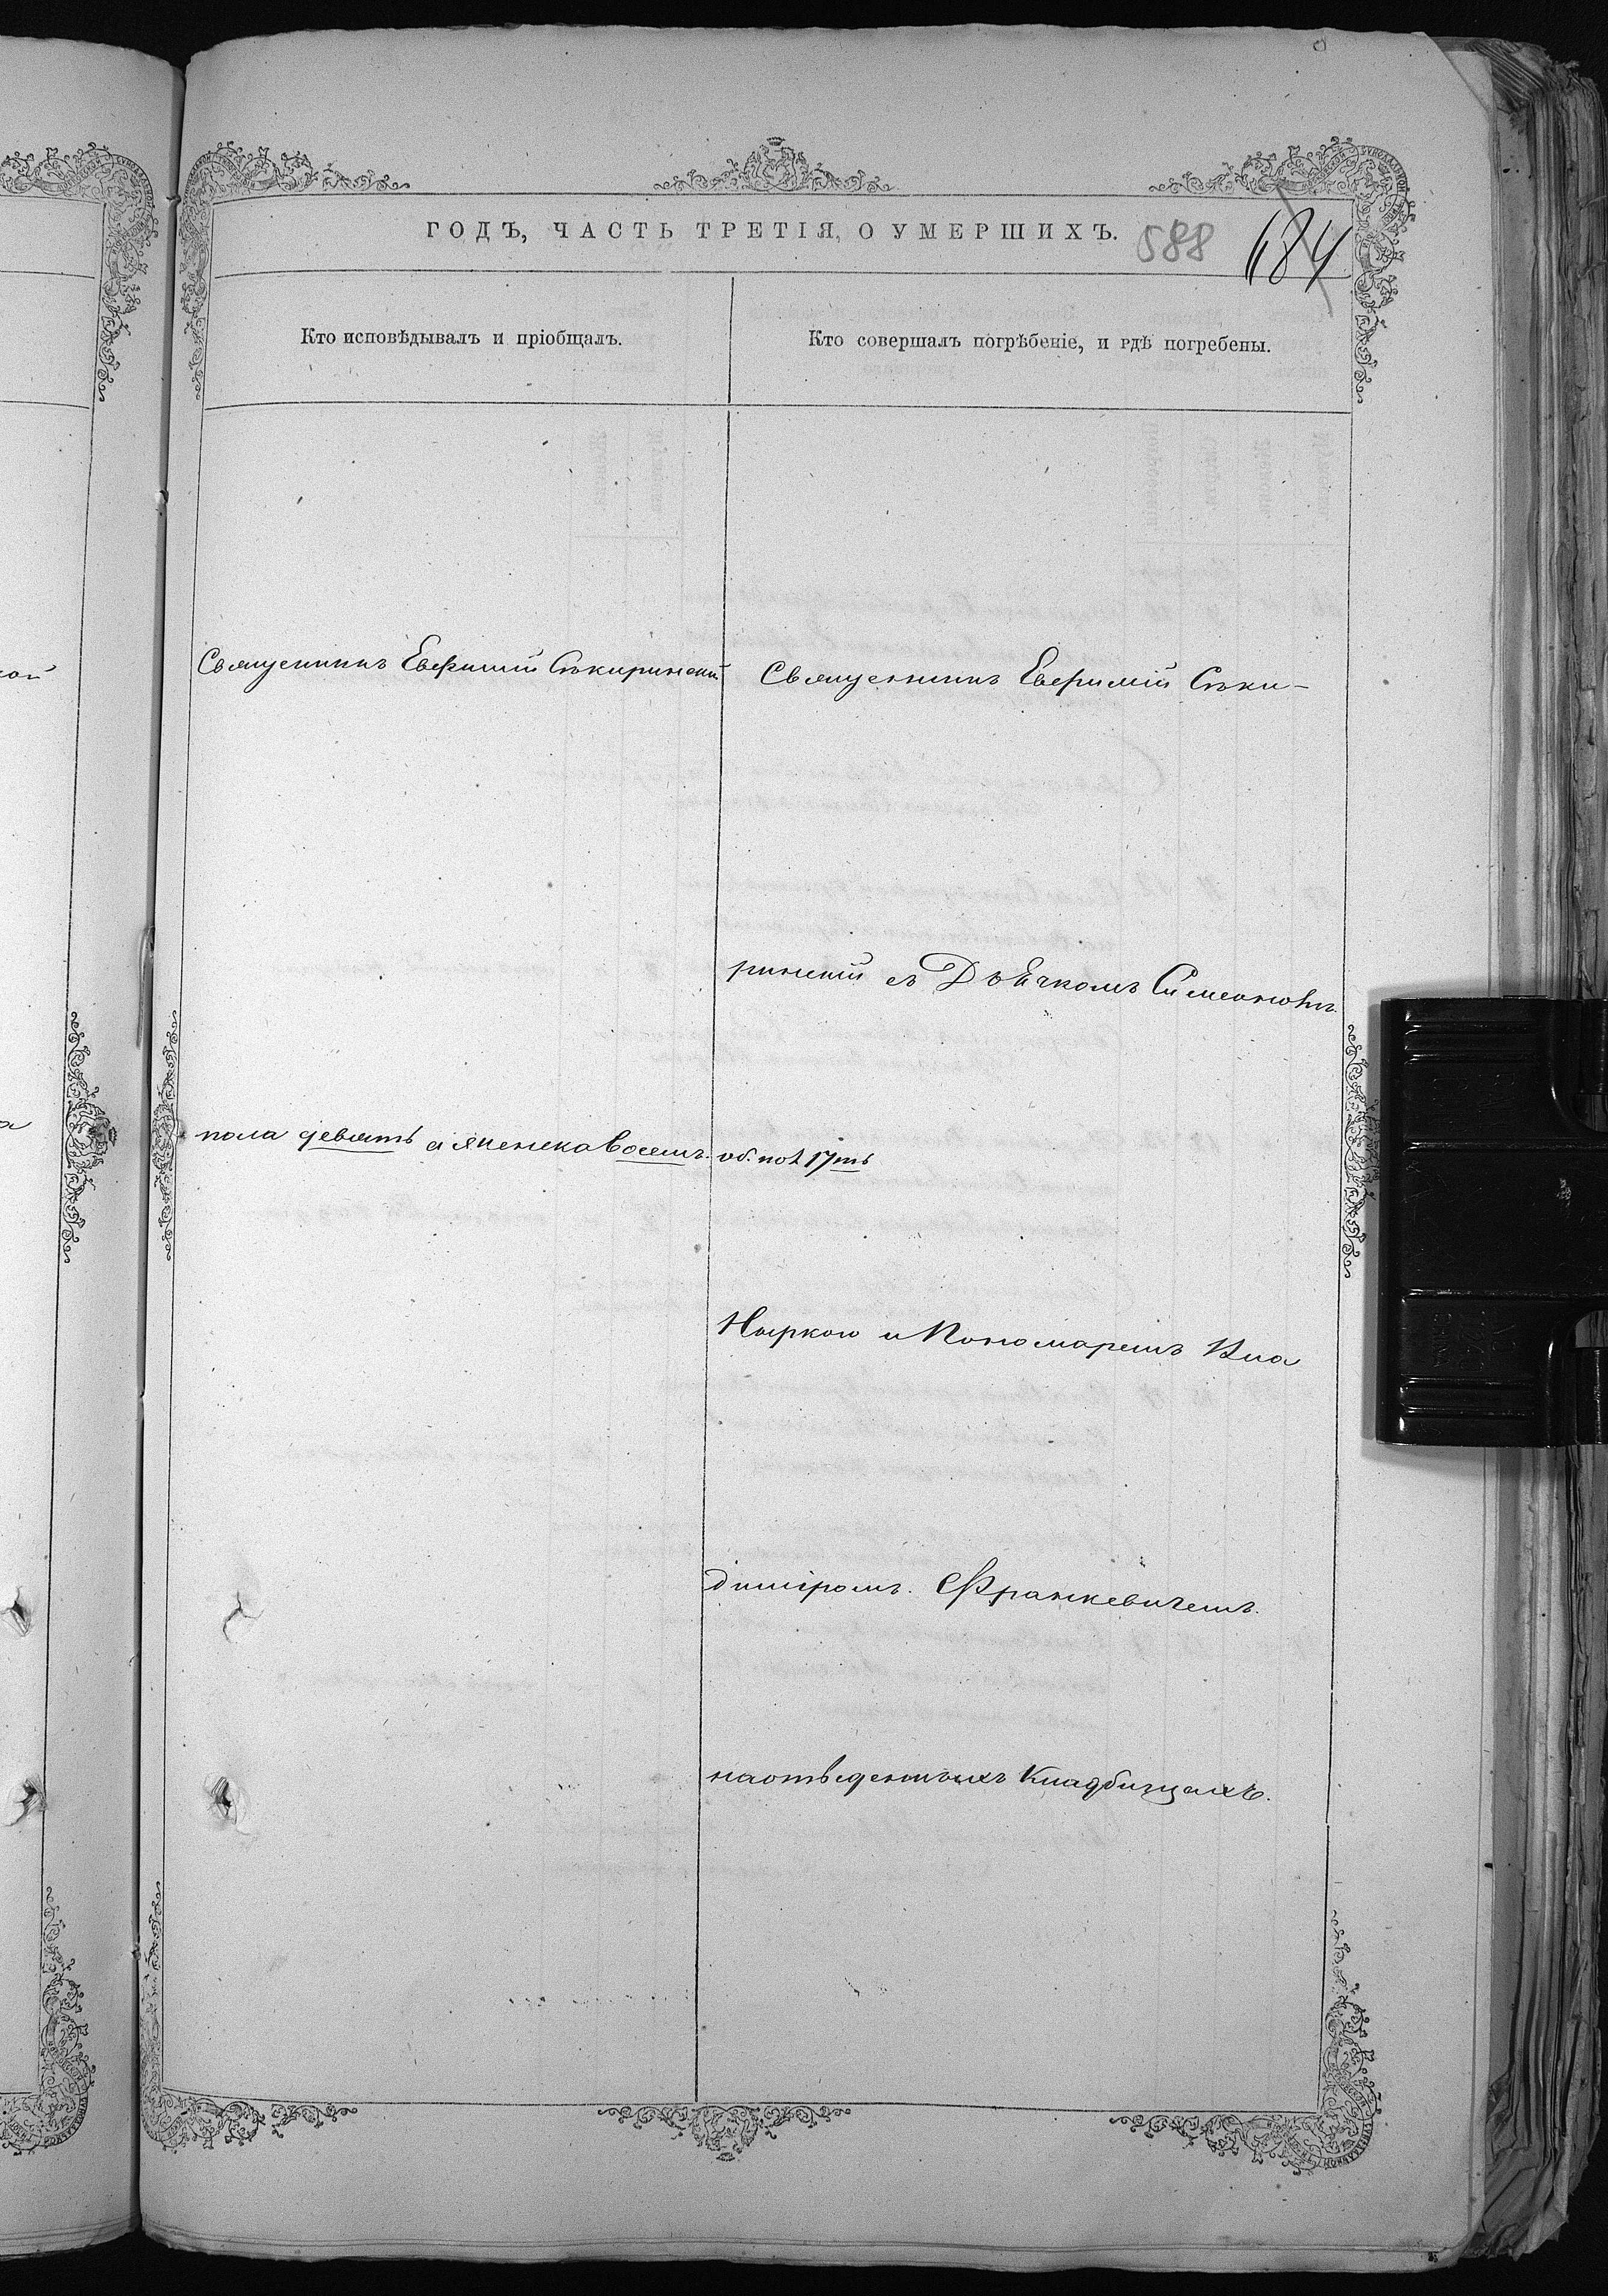 ГОДЪ, ЧАСТЬ ТРЕТІЯ, О УМЕРШИХЪ.
588 684
Кто исповѣдывалъ и пріобщалъ.
Кто совершалъ погрѣбеніе, и гдѣ погребены.
Священникъ Евфимій Сѣкиринскій
Священникъ Евфимій Сѣки-
ринскій съ Дьячкомъ Симеономъ
пола девять а женска восемь. об. пол 17ть
Ныркою и Пономаремъ Вла
диміромъ. Франкевичемъ.
на отведенныхъ кладбищахъ.